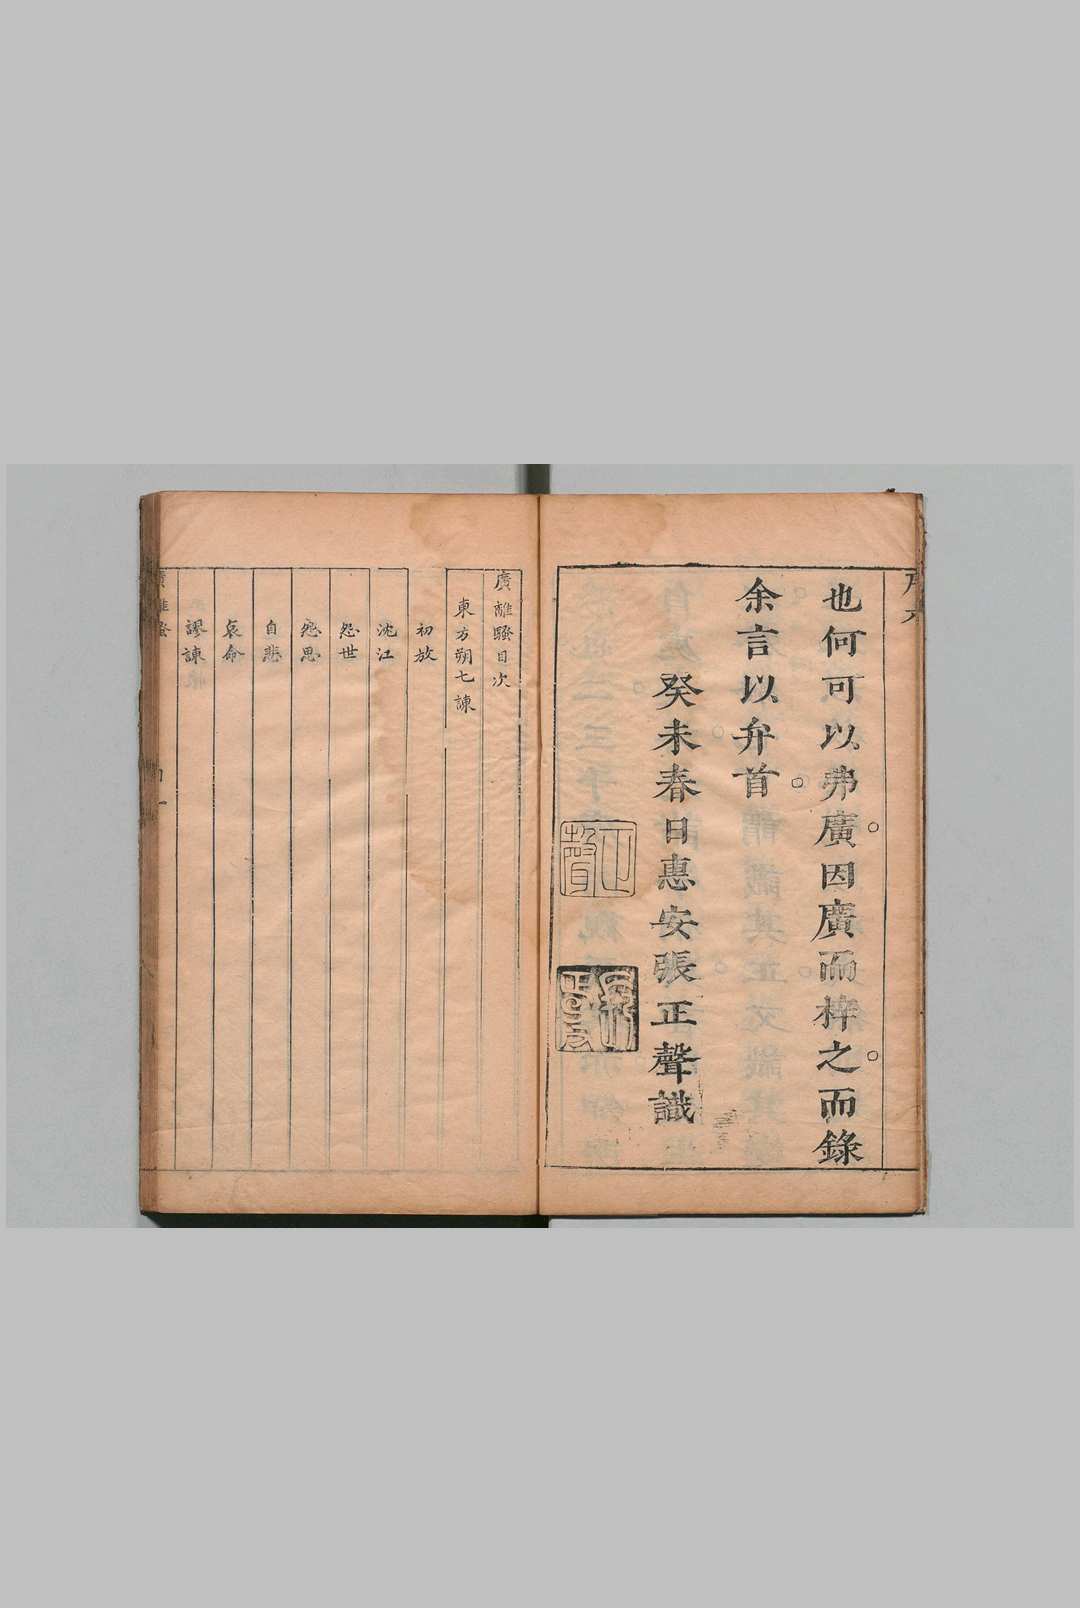 也何可以弗廣因廣而梓之而錄
余言以弁首
癸未春日惠安張正聲識
正聲
廣離騷目次
東方朔七諫
初放
沈江
怨世
怨思
自悲
哀命
謬諫